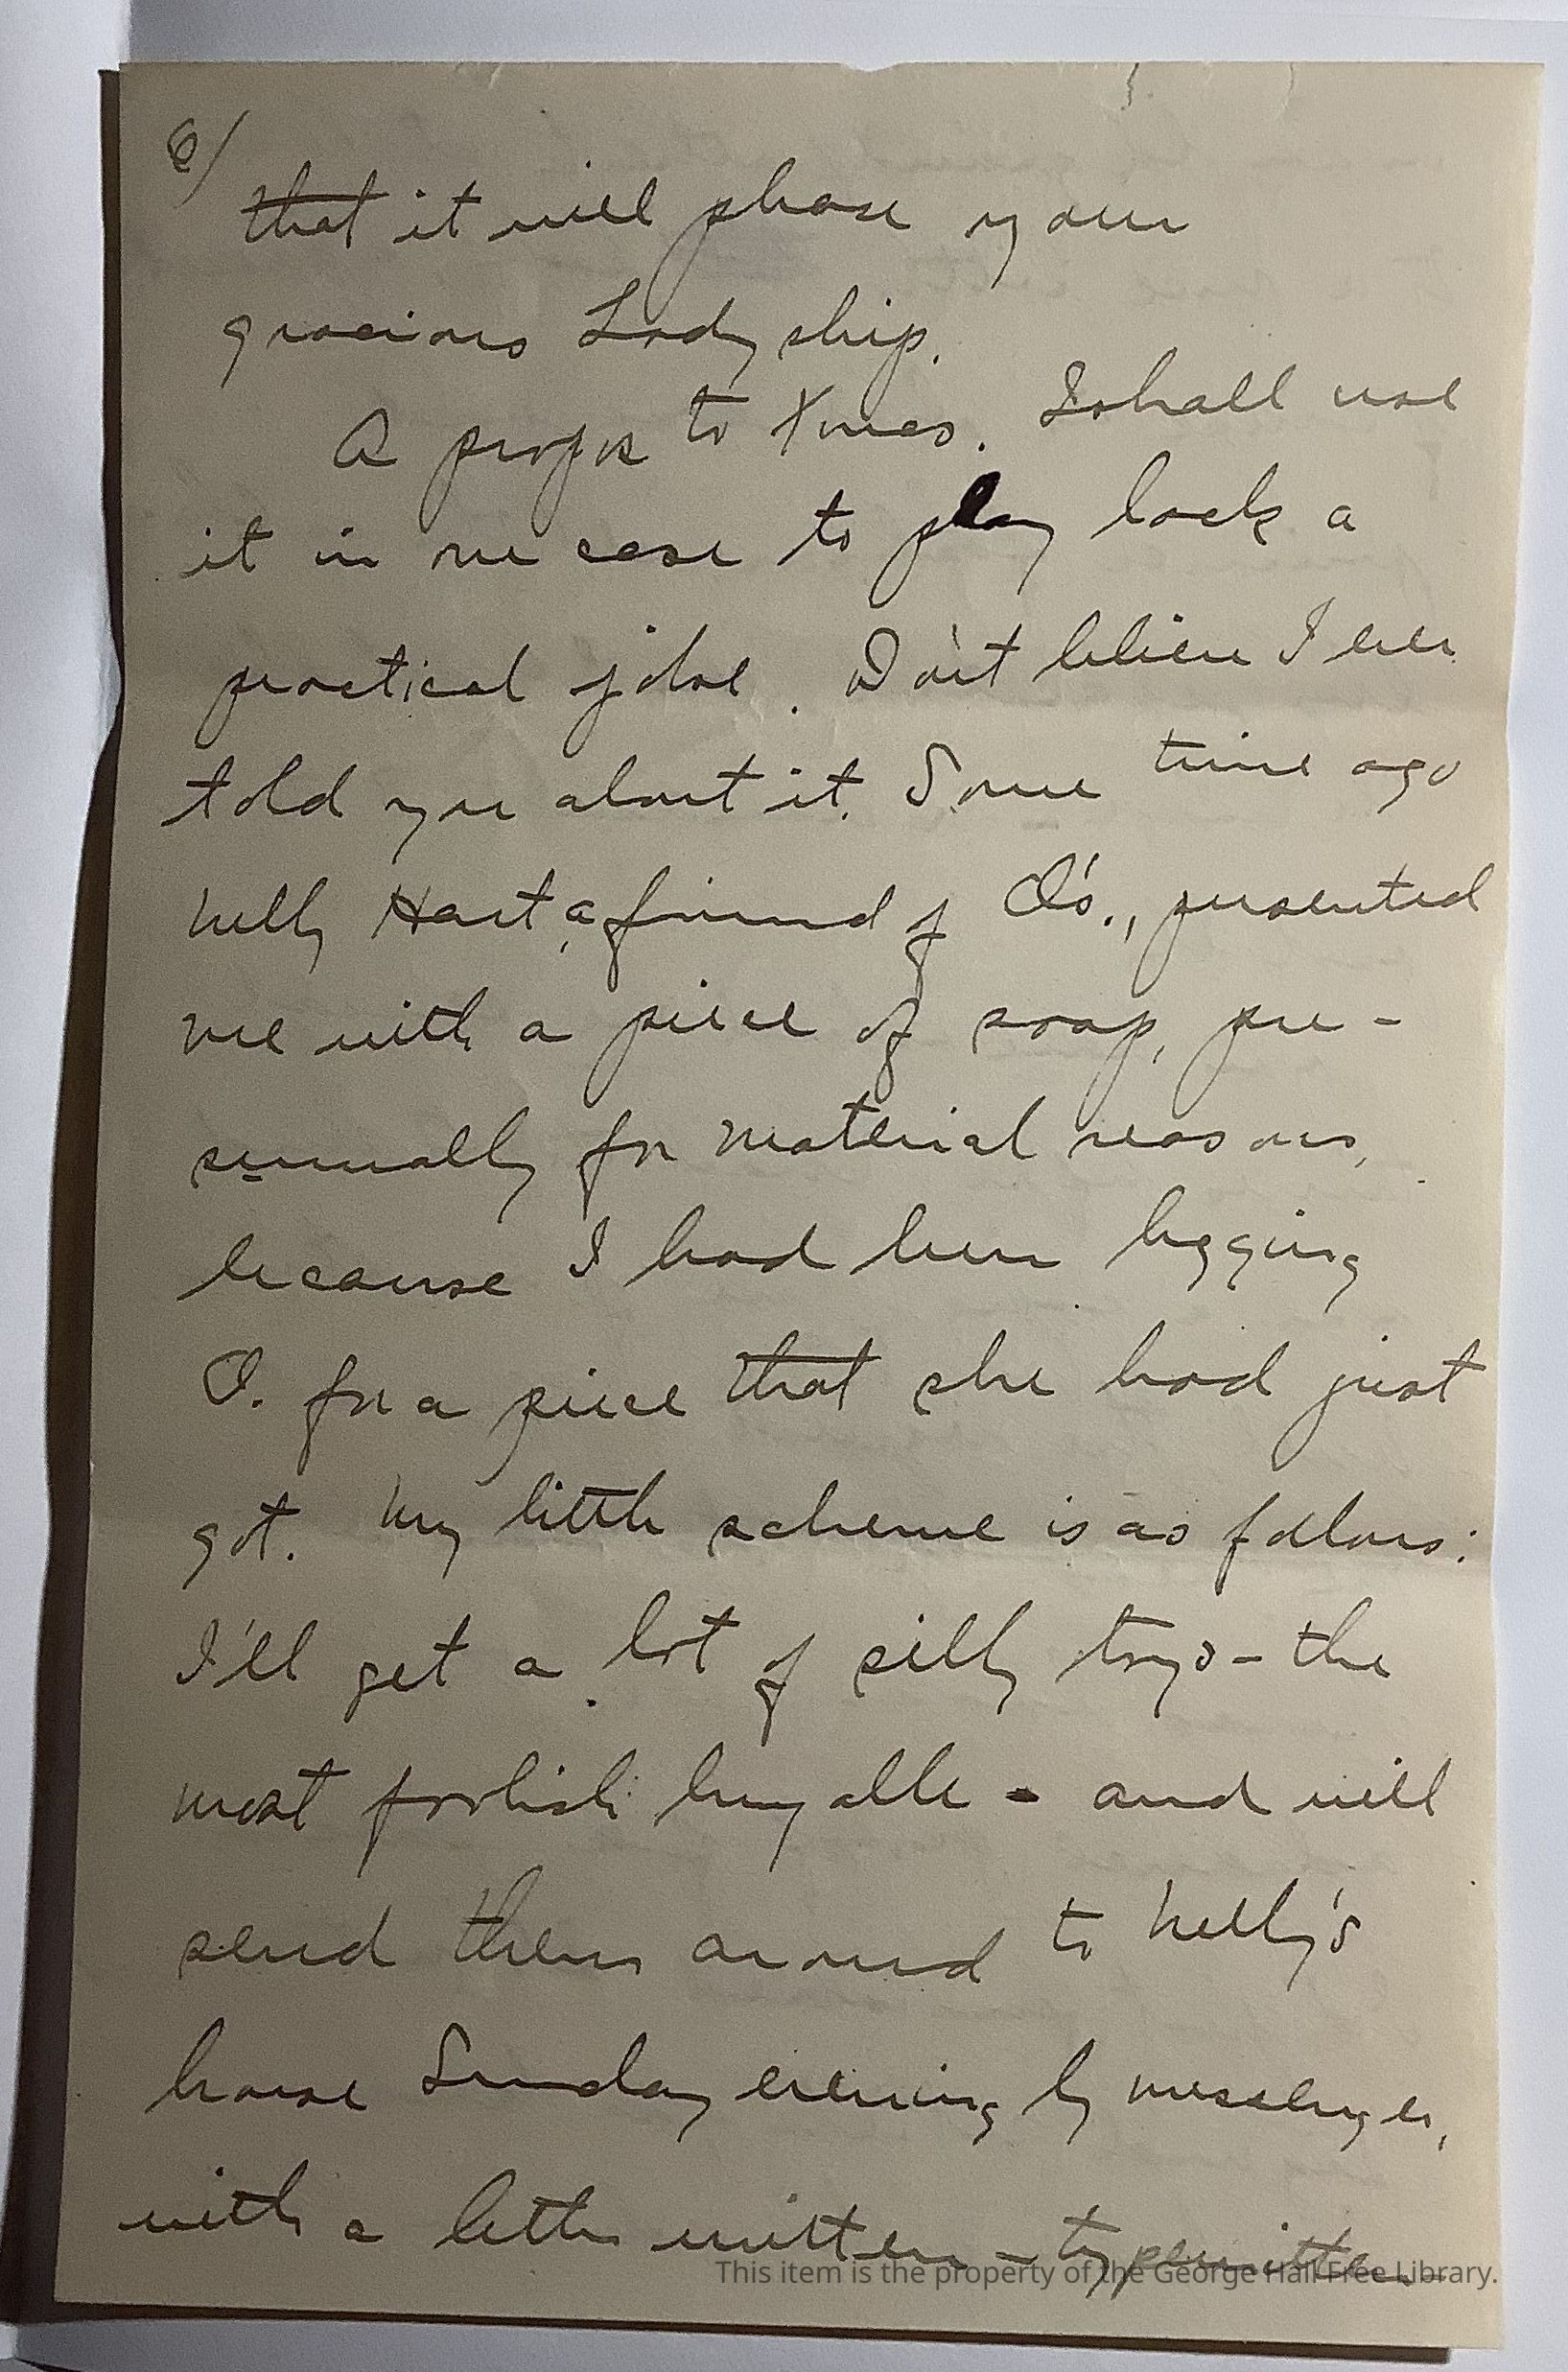 6/
that it will please your
gracious Ladyship.
A propos to Xmas. I shall use
it in one case to play back a
practical joke. Don't believe I ever
told you about it. Some time ago
Nelly Hart, a friend of O's., presented
me with a piece of soap, pre-
sumably for material reasons,
because I had been begging
O. for a piece that she had just
got. My little scheme is as follows:
I'll get a lot of silly toys - the
most foolish buyable - and will
send them around to Nelly's
house Sunday evening by messenger,
with a letter written - typewritten
This item is the property of the George Hail Free Library.